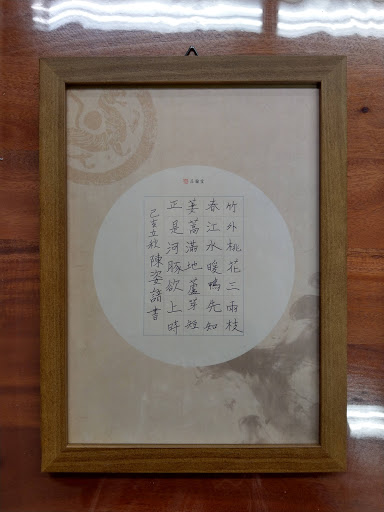 竹外桃花三兩枝
春江水暖鴨先知
蔞蒿滿地蘆芽短
正是河豚欲上時
己亥立秋陳姿諭書